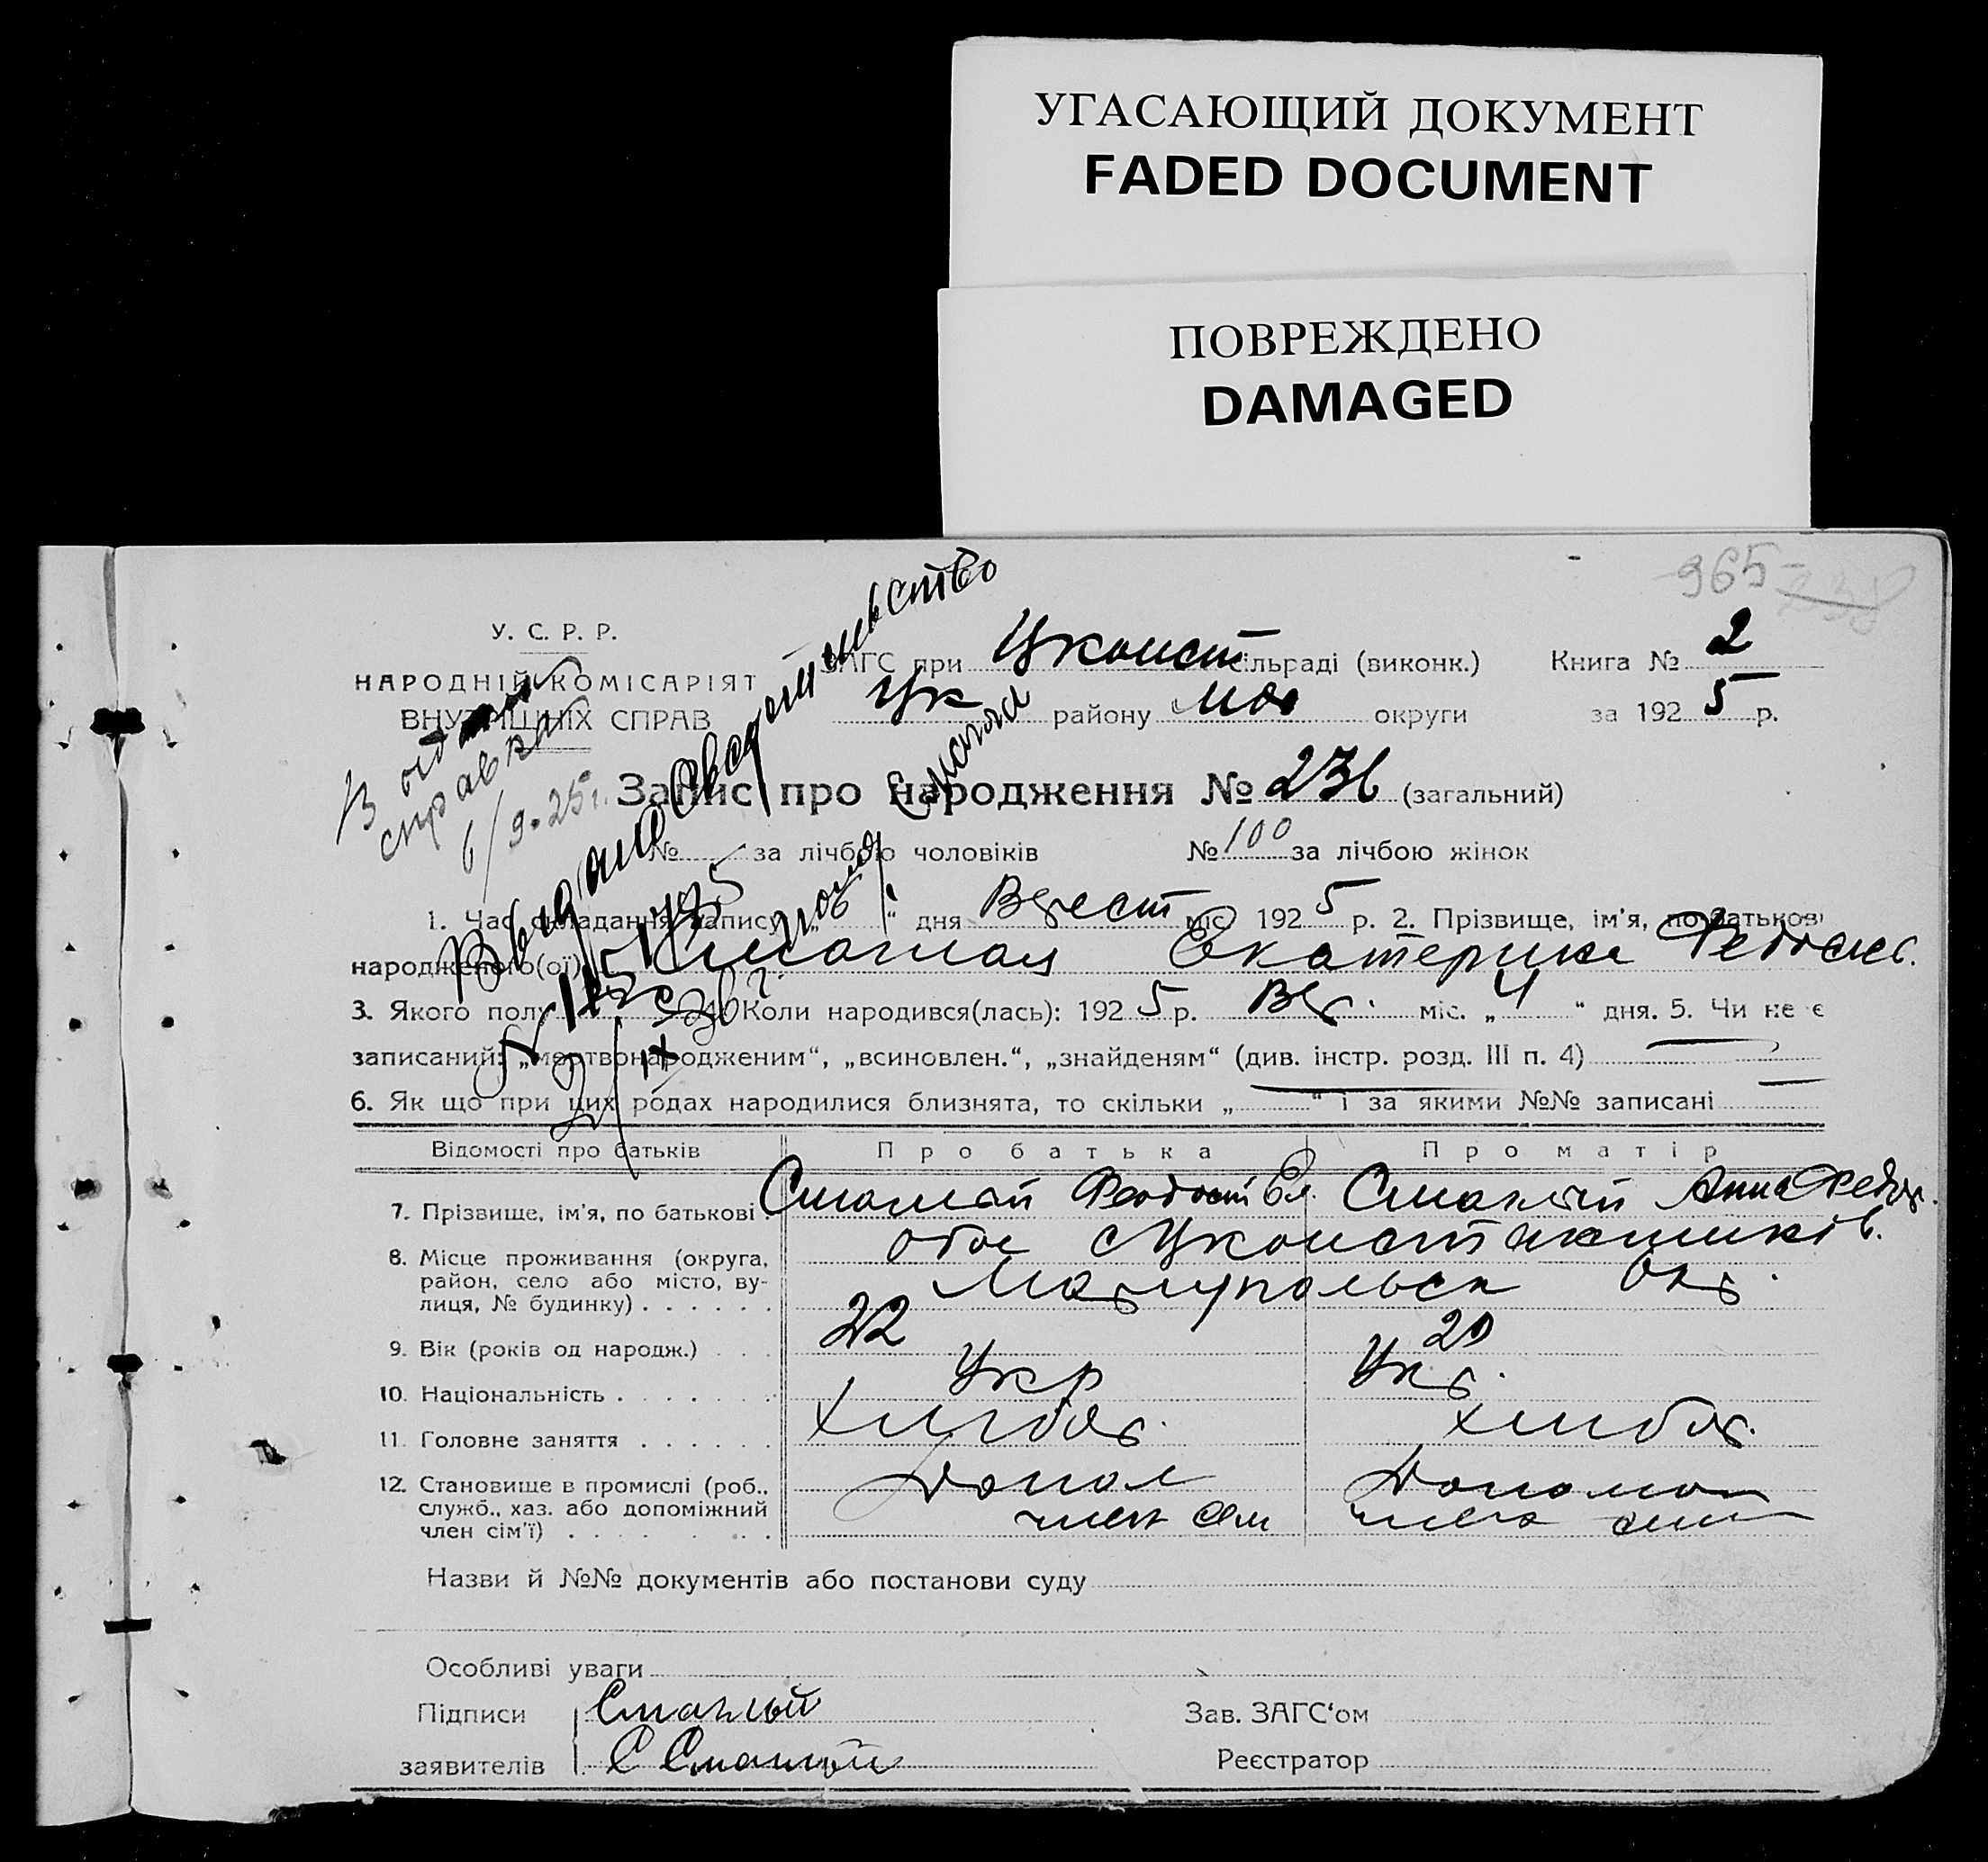 УГАСАЮЩИЙ ДОКУМЕНТ
FADED DOCUMENT
ПОВРЕЖДЕНО
DAMAGED
965 238
У. С. Р. Р.
НАРОДНІЙ КОМІСАРІЯТ
ВНУТРІШНІХ СПРАВ
ЗАГС при Цконст сільраді (виконк.) Книга № 2
Цк району Мар округи за 1925 р.
справка
6/9.25 г.
Выдано свидетельство
Запис про народження № 236 (загальний)
№ за лічбою чоловіків № 100 за лічбою жінок
1. Час складання запису „6“ дня Верест міс. 1925 р. 2. Прізвище, ім'я, по батькові
народженого(ої) Смаглая Екатерина Федосиев.
3. Якого полу 4. Коли народився(лась): 1925 р. Вер. міс. „4“ дня. 5. Чи не є
записаний: „мертвонародженим“, „всиновлен.“, „знайденям“ (див. інстр. розд. III п. 4)
6. Як що при цих родах народилися близнята, то скільки „ “ і за якими №№ записані
Відомості про батьків Про батька Про матір
7. Прізвище, ім'я, по батькові Смаглий Феодосий Смаглий Анна Федор.
8. Місце проживання (округа,
район, село або місто, ву-
лиця, № будинку)
обое Цконстантинків.
Маріупольск Окр.
9. Вік (років од народж.) 22 20
10. Національність Укр Укр.
11. Головне заняття Хлібор. Хлібор.
12. Становище в промислі (роб.,
служб., хаз. або допоміжний
член сім'ї)
Допом Допомож
член сем член сем
Назви й №№ документів або постанови суду
Особливі уваги
Підписи Смаглый Зав. ЗАГС‘ом
заявителів С Смаглый Реєстратор